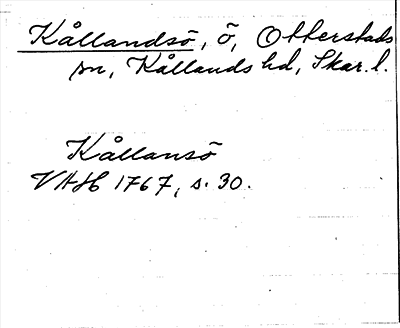 Kållandsö, ö, Otterstads
sn, Kållands hd, Skar. l.
Kållansö
VAH 1767, s. 30.